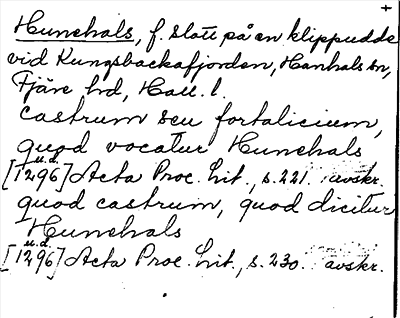 Hunehals, f. slott på en klippudde
vid Kungsbackafjorden, Hanhals sn,
Fjäre hd, Hall. l.
castrum seu fortalicium,
quod vocatur Hunehals
u.d.
[1296] Acta Proc. Lit., s. 221. avskr.
quod castrum, quod dicitur
Hunehals
u.d.
[1296] Acta Proc. Lit., s. 230. avskr.